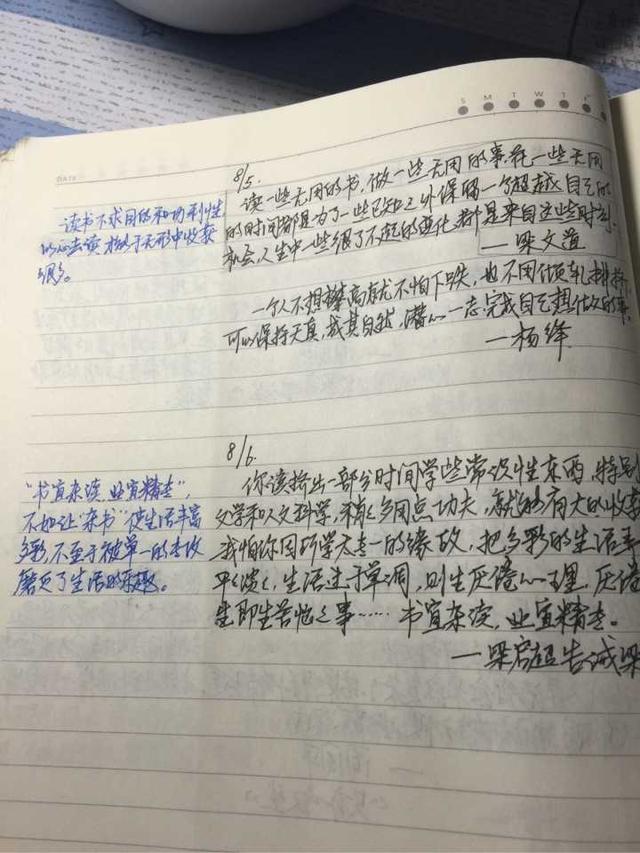 DATE
S M T W T F
8/5.
读一些无用的书，做一些无用的事，花一些无用
的时间都是为了一些已知之外保留一个超越自己的
机会，人生中一些很了不起的变化，都是来自这些时刻。
—梁文道
读书不求目的和功利性
的心去读，于无形中收获
很多。
一个人不想攀高就不怕下跌，也不用倾轧排挤，
可以保持天真，成其自然，潜心一志完成自己想做的事。
—杨绛
8/6.
你该挤出一部分时间学些常识性东西，特别
文学和人文科学，稍稍多用点功夫，就能有大的收获
我怕你因所学太专一的缘故，把多彩的生活弄
平淡，生活过于单调，则生厌倦心理，厌倦
生即生苦恼之事……书宜杂读，业宜精专。
—梁启超告诫梁
“书宜杂读，业宜精专”，
不如让“杂书”使生活丰富
多彩，不至于被单一的专攻
磨灭了生活的乐趣。